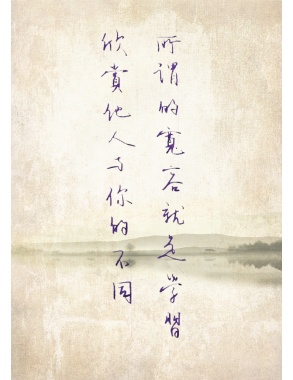 所謂的寬容就是學習
欣賞他人与你的不同